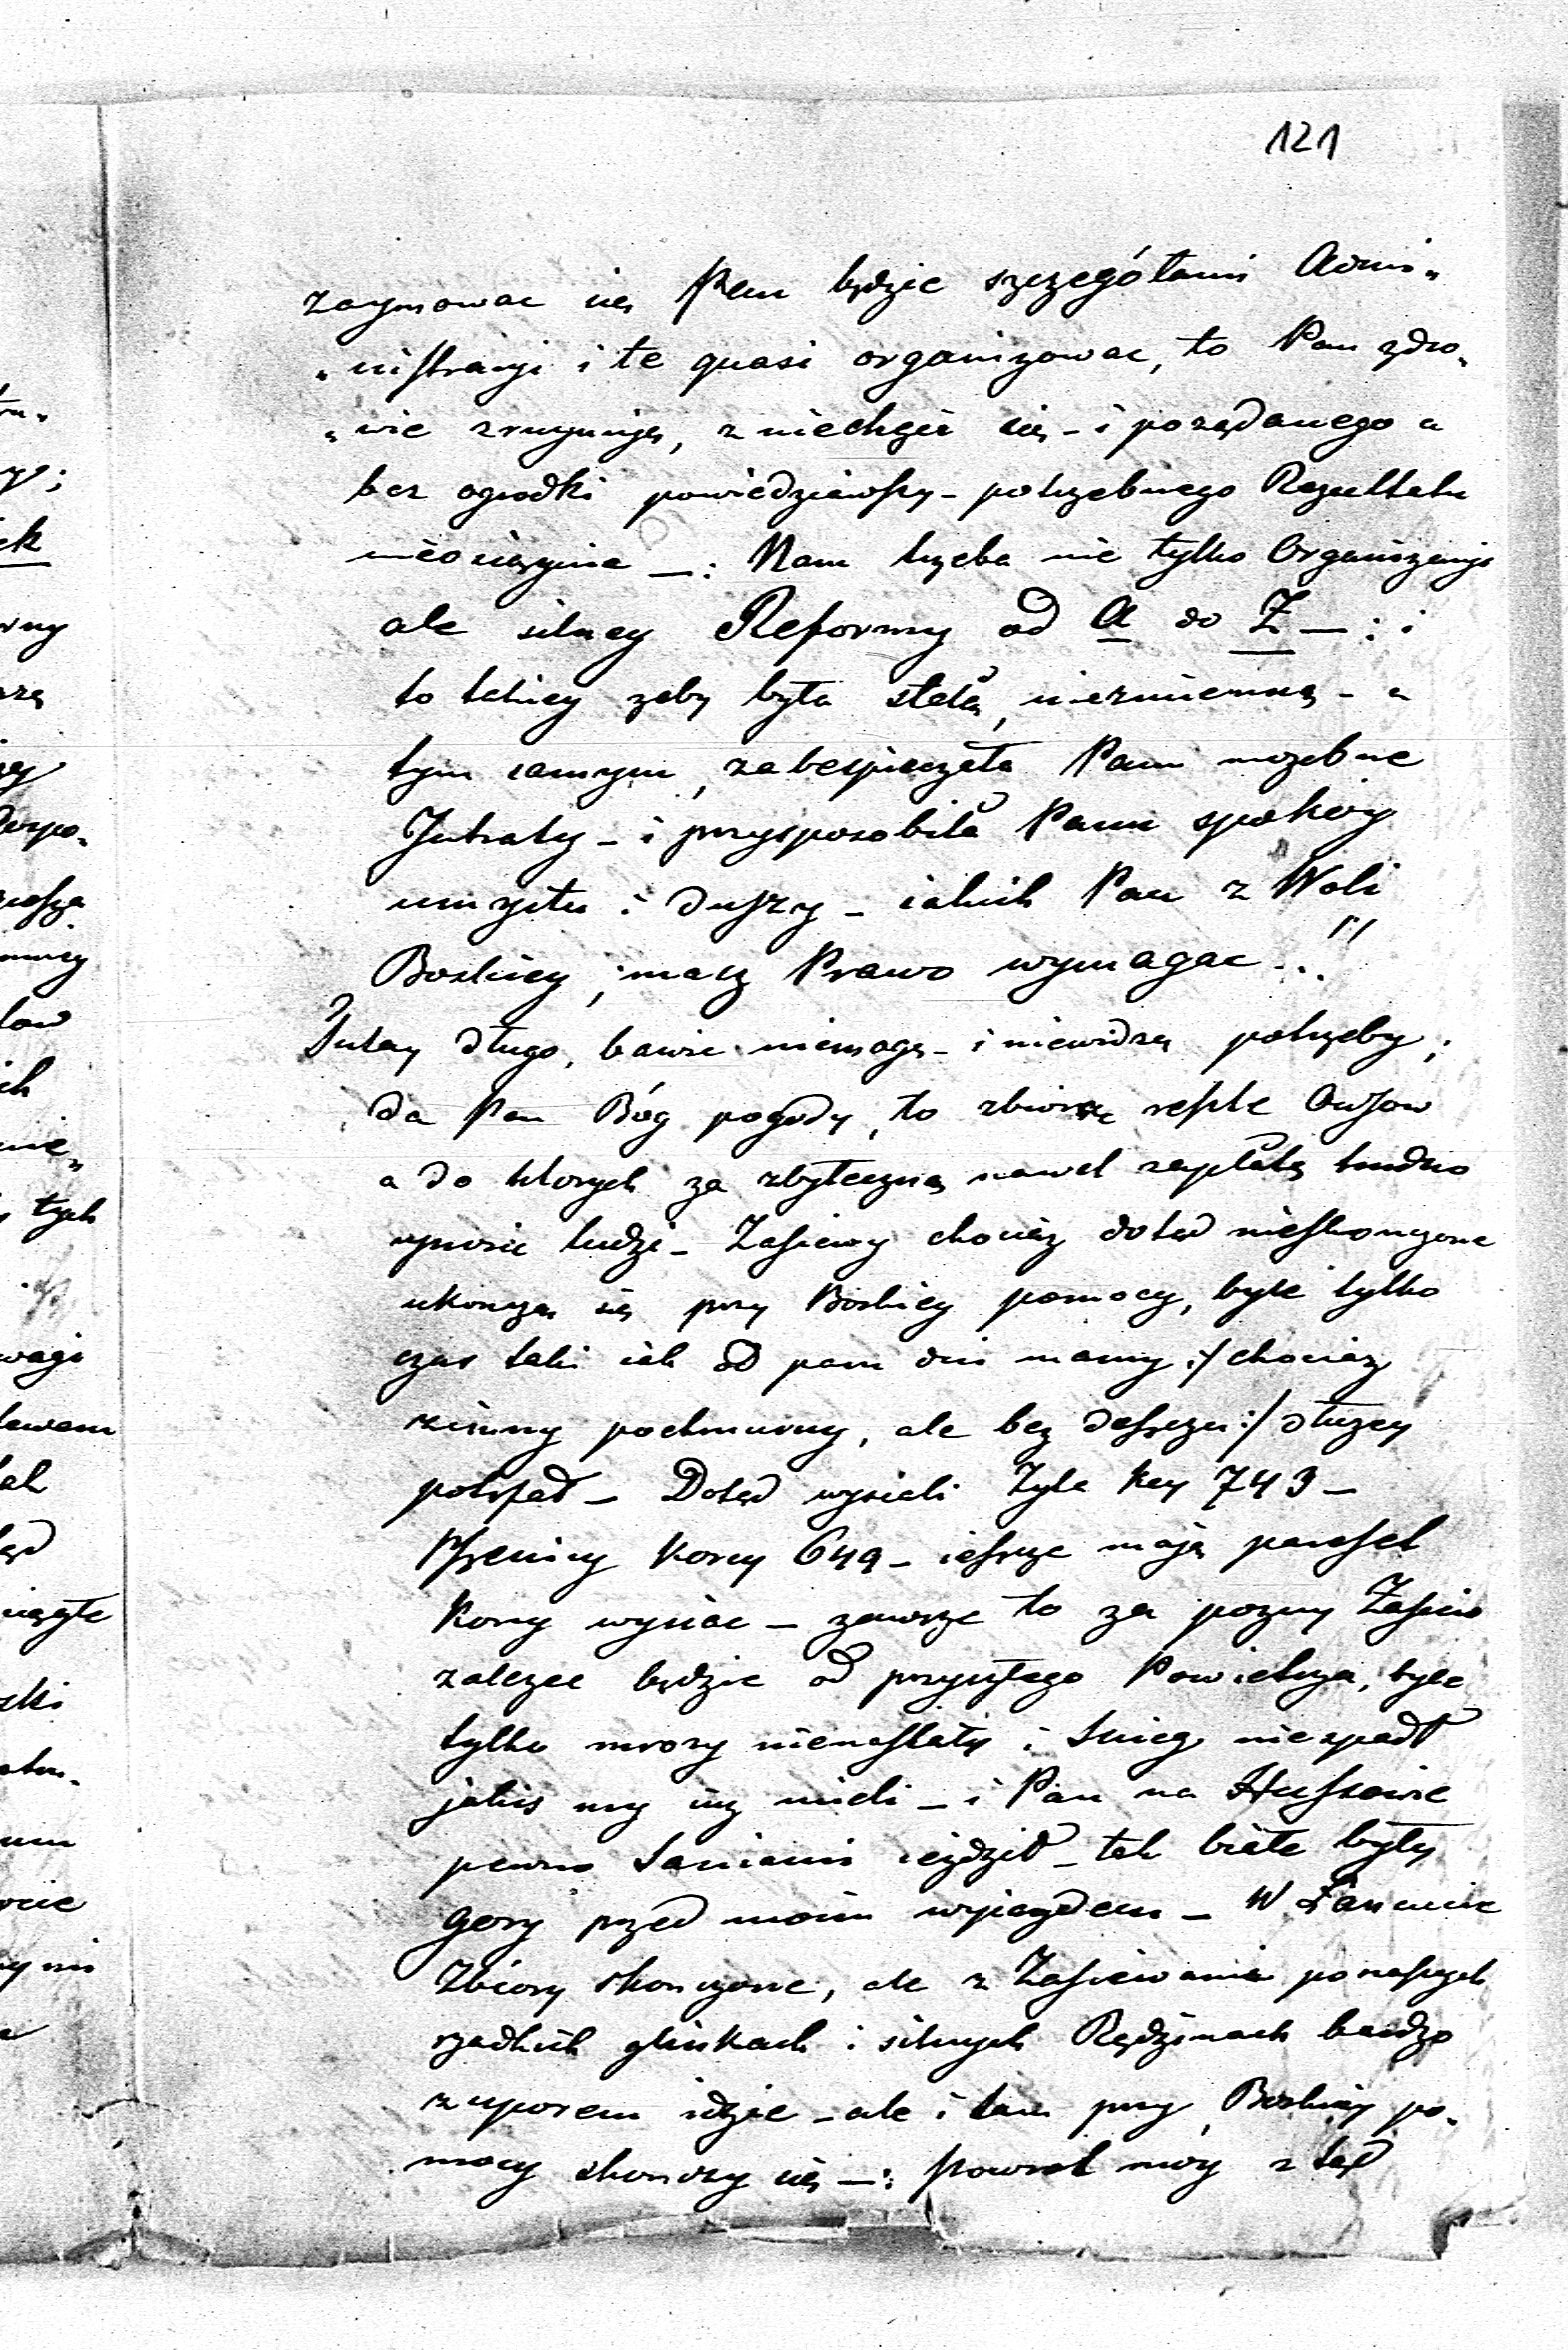 121
zaymowac się Pan będzie szczegółami Admi„
„nistracyi i te quasi organizowac, to Pan zdro„
„wie zruynuje, zniechęci się - i pożądanego a
bez ogrodki powiedziawszy - potrzebnego Rezultatu
nieosiągnie —: Nam trzeba nie tylko Organizacyi
ale silney Reformy od A do Z —: i
to takiey żeby była stałą, niezmienną - a
tym samym, zabespieczała Panu możebne
Intraty - i przysposobiła Panu spokoy
umysłu i duszy - iakich Pan z Woli
Boskiey, masz Prawo wymagac ...!!
Tutay długo, bawic niemogę - i niewidzę potrzeby;
da Pan Bóg pogody, to zbiorą resztę Owsow
a do ktorych za zbyteczną nawet zapłatą trudno
ludzi - Zasiewy chociaż dotąd nieskonczone
ukonczą się przy Boskiey pomocy, byle tylko
czas taki iak od paru dni mamy :/ chociaż
zimny pochmurny, ale bez deszczu :/ dłużey
potrwał - Dotąd wysieli Żyta Kcy 743 -
Pszenicy Korcy 649 - ieszcze mają paręset
Korcy wysiac - zawsze to za pozny Zasiew
zalezec będzie od przyszłego Powietrza, byle
tylko mrozy nienastały i snieg niespadł
jakieś my iuż mieli - i Pan na
pewno Saniami ieździł - tak białe były
gory przed moim wyjazdem - W Łancucie
Zbiory skonczone, ale z Zasiewania po naszych
rzadkich glinkach i silnych Rędzinach bardzo
z uporem idzie - ale i tam przy Boskiey po„
mocy skonczy się —: powrot moy z tąd